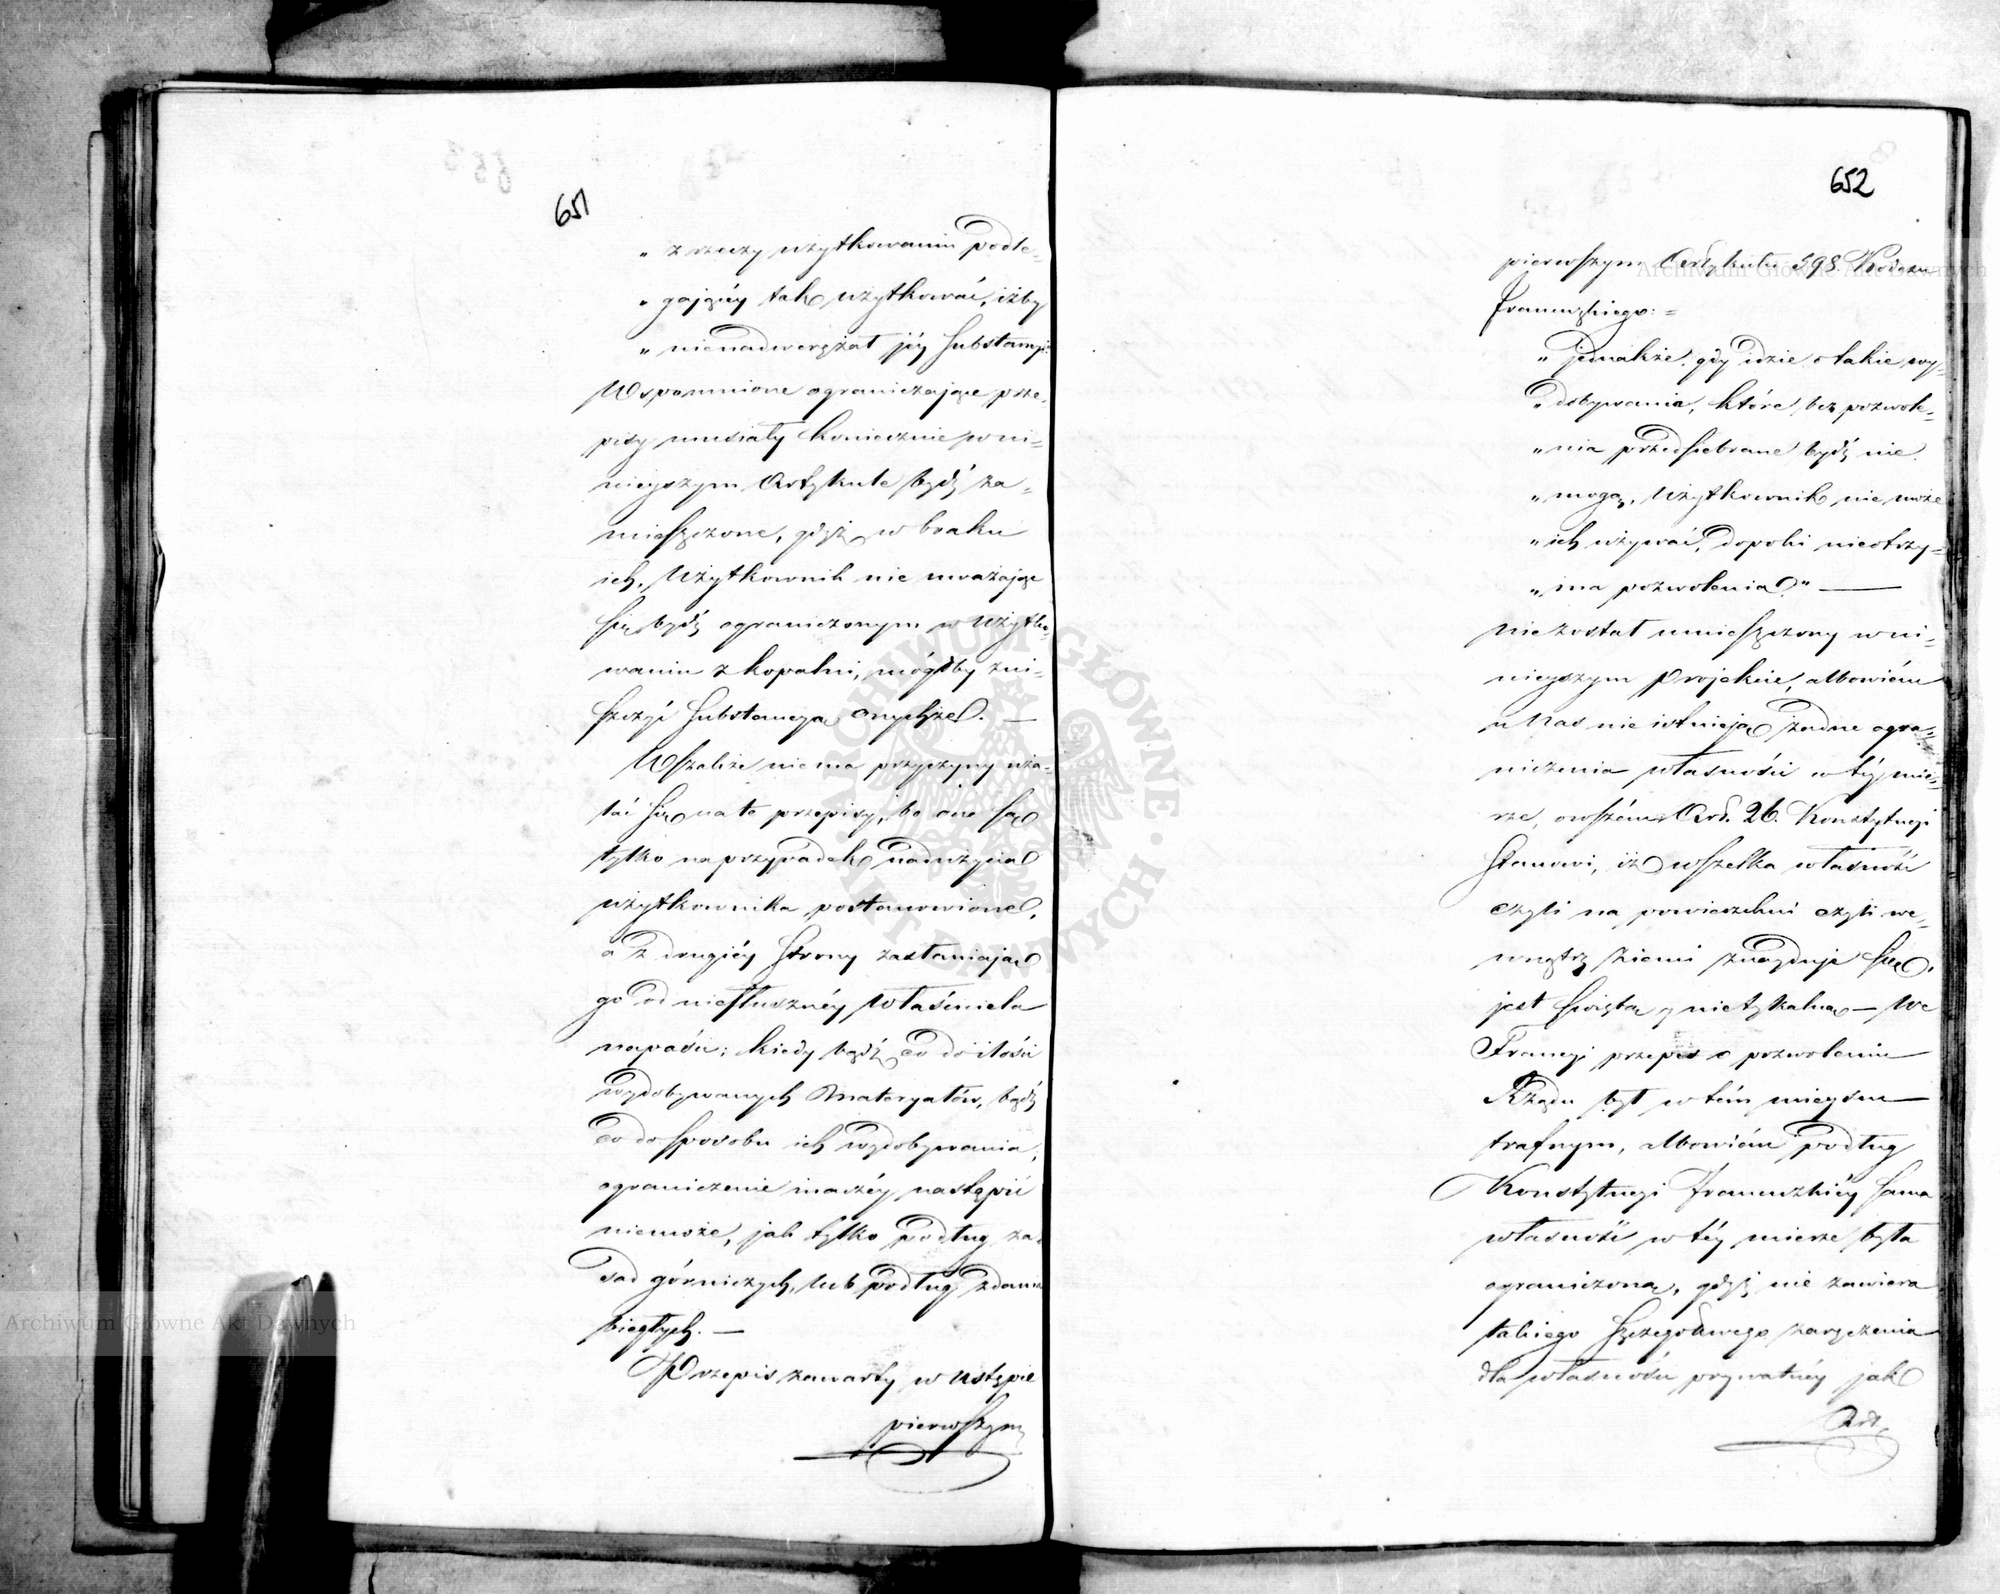 651
„ z rzeczy użytkowaniu podle-
„ gającéy tak użytkować, iżby
„ nienadwerężał jéy substancyi.
Wspomnione ograniczające prze-
pisy musiały koniecznie w ni-
nieyszym Artykule bydź za-
mieszczone, gdyż w braku
ich, Użytkownik nie uważając
się bydź ograniczonym w Użytko-
waniu z kopalni, mógłby zni-
szczyć substancyą onychże. —
Wszakże niema przyczyny uża-
lać się na te przepisy, bo one są
tylko na przypadek nadużycia
użytkownika postanowione,
a z drugiéy strony zasłaniają
go od niesłusznéy Właściciela
napaści; kiedy bądź co do ilości
wydobywanych materyałów, bądź
co do sposobu ich wydobywania,
ograniczenie inaczéy nastąpić
niemoże, jak tylko podług za-
sad górniczych, lub podług zdania
biegłych. —
Przepis zawarty w ustępie
pierwszym
652
pierwszym Artykułu 598. Kodexu
Francuzkiego: =
„ jednakże gdy idzie o takie wy-
„ dobywania, które bez pozwole-
„ nia przedsiebrane bydź nie
„ mogą, Użytkownik nie może
„ ich używać, dopoki nieotrzy-
„ ma pozwolenia" —
nie został umieszczony w ni-
nieyszym Projekcie, albowiém
u Nas nie istnieją żadne ogra-
niczenia własności w téy mie-
rze, owszém Art. 26. Konstytucyi
stanowi, iż wszelka własność
czyli na powierzchni czyli we-
wnątrz ziemi znayduje się,
jest święta y nietykalna — We
Francyi przepis o pozwoleniu
Rządu był w tém mieyscu
trafnym, albowiém podług
Konstytucyi Francuzkiéy sama
własność w téy mierze była
ograniczona, gdyż nie zawiera
takiego szczegółowego zaręczenia
dla własności prywatnéy jak
Art.
Archiwum Główne Akt Dawnych
Archiwum Główne Akt Dawnych
ARCHIWUM GŁÓWNE AKT DAWNYCH